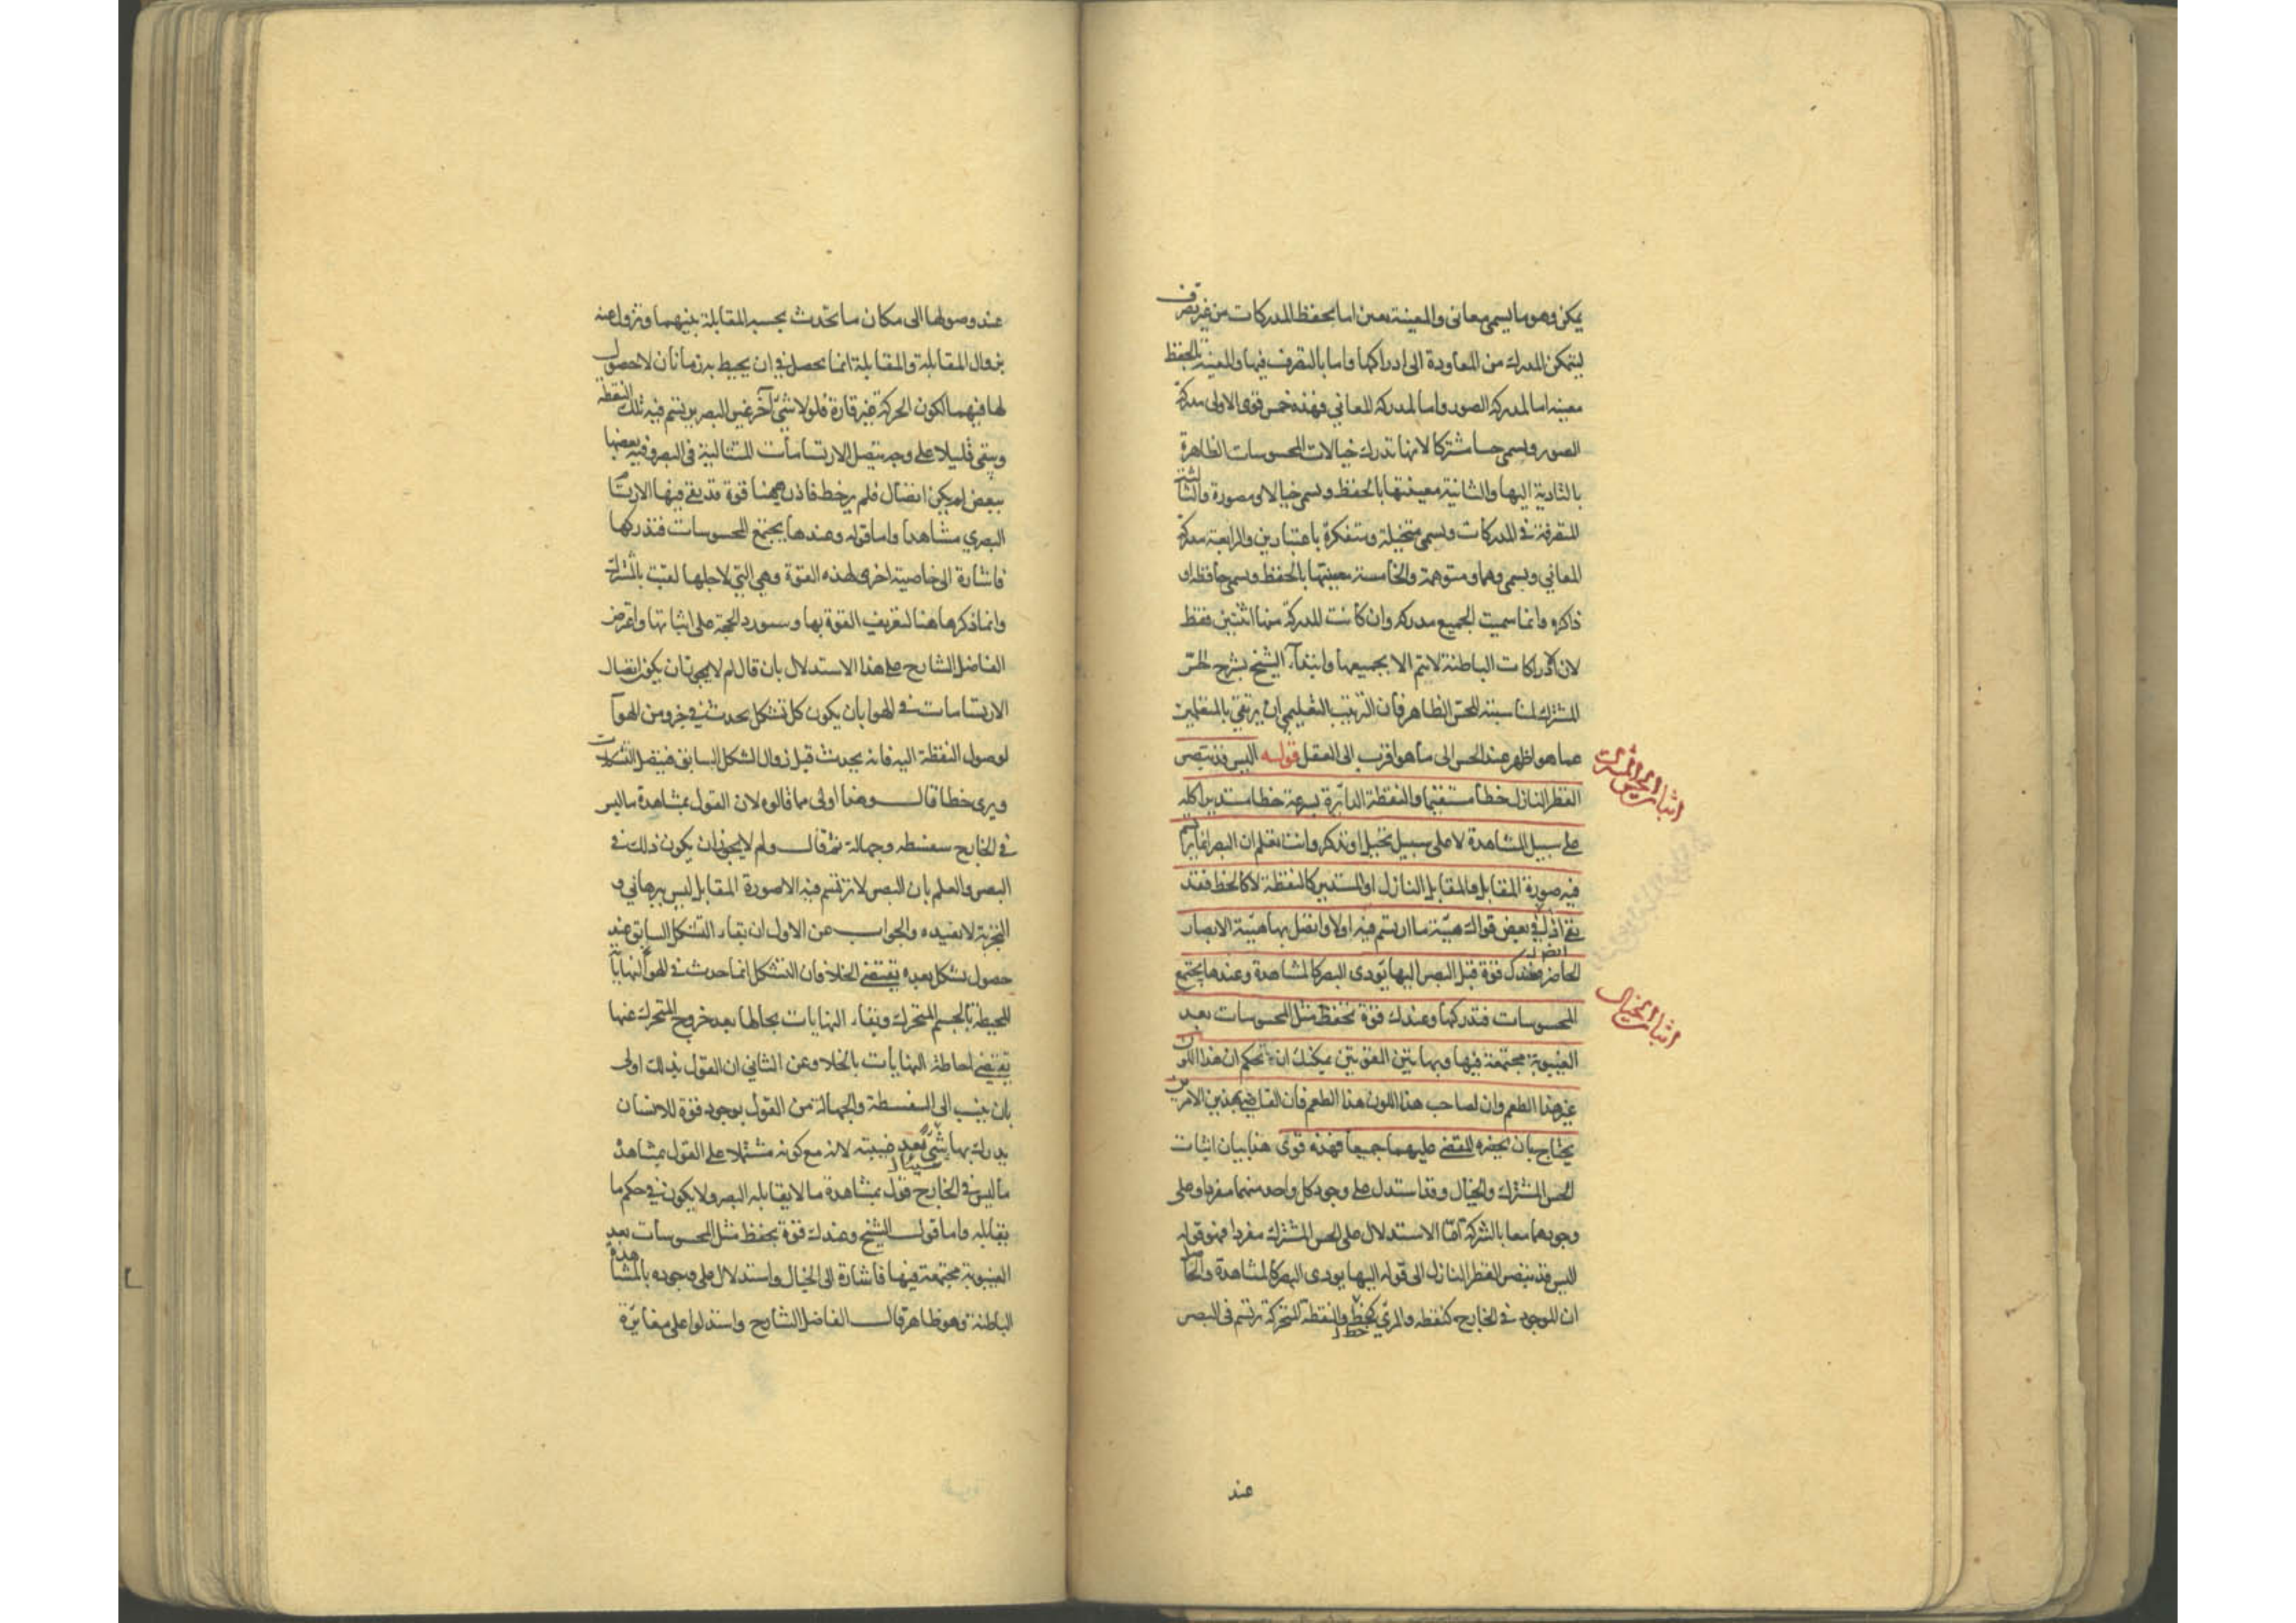 يمكن وهو ما يسمى معاني والمعينة تعين اما بحفظ المدركات من غير تصرف
ليتمكن المدرك من المعاودة الى ادراكها واما بالتصرف فيها والمعينة بالحفظ
معينه اما لمدركه الصور واما لمدركه المعاني فهذه خمس قوى الاولى مدركة
الصور ويسمى حسا مشتركا لانها تدرك خيالات المحسوسات الظاهرة
بالتادية اليها والثانية معينتها بالحفظ ويسمى خيالا او مصورة والثالثة
المتصرفة في المدركات ويسمى متخيلة ومتفكرة باعتبارين والرابعة مدركة
المعاني ويسمى وهما ومتوهمة والخامسة معينتها بالحفظ ويسمى حافظه او
ذاكره وانما سميت الجميع مدركه وان كانت المدركة منها اثنتين فقط
لان الادراكات الباطنة لا يتم الا بجميعها وابتدأ الشيخ بشرح الحس
المشترك لمناسبته للحس الظاهر فان الترتيب التعليمي ان يرتقي بالمتعلمين
عما هو اظهر عند الحس الى ما هو اقرب الى العقل قوله اليس قد تبصر
القطر النازل خطا مستقيما والنقطة الدائرة بسرعة خطا مستديرا كله
على سبيل المشاهدة لا على سبيل تخيل او تذكر وانت تعلم ان البصر انما يرتسم
فيه صورة المقابل والمقابل النازل او المستدير كالنقطة لا كالخط فقد
بقي اذن في بعض قواك هيئة ما ارتسم فيه اولا واتصل بها هيئة الابصار
الحاضر فعندك قوة قبل البصر اليها يؤدى البصر كالمشاهدة وعندها يجتمع
المحسوسات فتدركها وعندك قوة تحفظ مثل المحسوسات بعد
الغيبوبة مجتمعة فيها وبهاتين القوتين يمكنك ان تحكم ان هذا اللون
غير هذا الطعم وان لصاحب هذا اللون هذا الطعم فان القاضي بهذين الامرين
يحتاج بان يحضره المقضى عليهما جميعا فهذه قوى هذا بيان اثبات
الحس المشترك والخيال وقد استدل على وجود كل واحد منهما مفردا وعلى
وجودهما معا بالشركة اما الاستدلال على الحس المشترك مفردا فهو قوله
اليس قد تبصر القطر النازل الى قوله اليها يودى البصر كالمشاهدة والحاصل
ان الموجود في الخارج كنقطه والمرئي كخط والنقطة المتحركة ترتسم في البصر
خط
اثبات الحس المشترك
اثبات الخيال
عند
عند وصولها الى مكان ما تحدث بحسب المقابلة بينهما وتزول عنه
بزوال المقابلة والمقابلة انما يحصل في ان يحيط به زمانان لا حصول
لها فيهما لكون الحركة غير قارة فلولا شئ آخر غير البصر يرتسم فيه تلك النقطة
ويبقى قليلا على وجه يتصل الارتسامات المتتالية في البصر وفيه بعضها
ببعض لم يكن اتصال فلم ير خط فاذن ههنا قوة قد بقي فيها الارتسام
البصري مشاهدا واما قوله وعندها يجتمع المحسوسات فتدركها
فاشارة الى خاصية اخرى لهذه القوة وهي التي لاجلها لقبت بالمشترك
وانما ذكرها هنا لتعريف القوة بها وسيورد الحجة على اثباتها واعترض
الفاضل الشارح على هذا الاستدلال بان قال لم لا يجوز ان يكون اتصال
الارتسامات في الهوا بان يكون كل تشكل يحدث في جزو من الهوآ
لوصول النقطة اليه فانه يحدث قبل زوال الشكل السابق فيتصل التشكلات
ويرى خطا قال وهذا اولى مما قالوه لان القول بمشاهدة ما ليس
في الخارج سفسطه وجهالة ثم قال ولم لا يجوز ان يكون ذلك في
البصر والعلم بان البصر لا ترتسم فيه الا صورة المقابل ليس ببرهاني و
التجربة لا تفيده والجواب عن الاول ان بقاء التشكل السابق عند
حصول تشكل بعده يقتضي الخلا فان التشكل انما حدث في الهوآ لنهاياته
المحيطة بالجسم المتحرك وبقاء النهايات بحالها بعد خروج المتحرك عنها
يقتضي احاطة النهايات بالخلا وعن الثاني ان القول بذلك اولى
بان ينسب الى السفسطة والجهالة من القول بوجود قوة للانسان
يدرك بها شئ بعد غيبته لانه مع كونه مشتملا على القول بمشاهدة
ما ليس في الخارج قول بمشاهدة ما لا يقابله البصر ولا يكون في حكم ما
يقابله واما قول الشيخ وعندك قوة يحفظ مثل المحسوسات بعد
الغيبوبة مجتمعة فيها فاشارة الى الخيال واستدلال على وجوده بالمشاهدة
الباطنة وهو ظاهر قال الفاضل الشارح واستدلوا على مغايرة